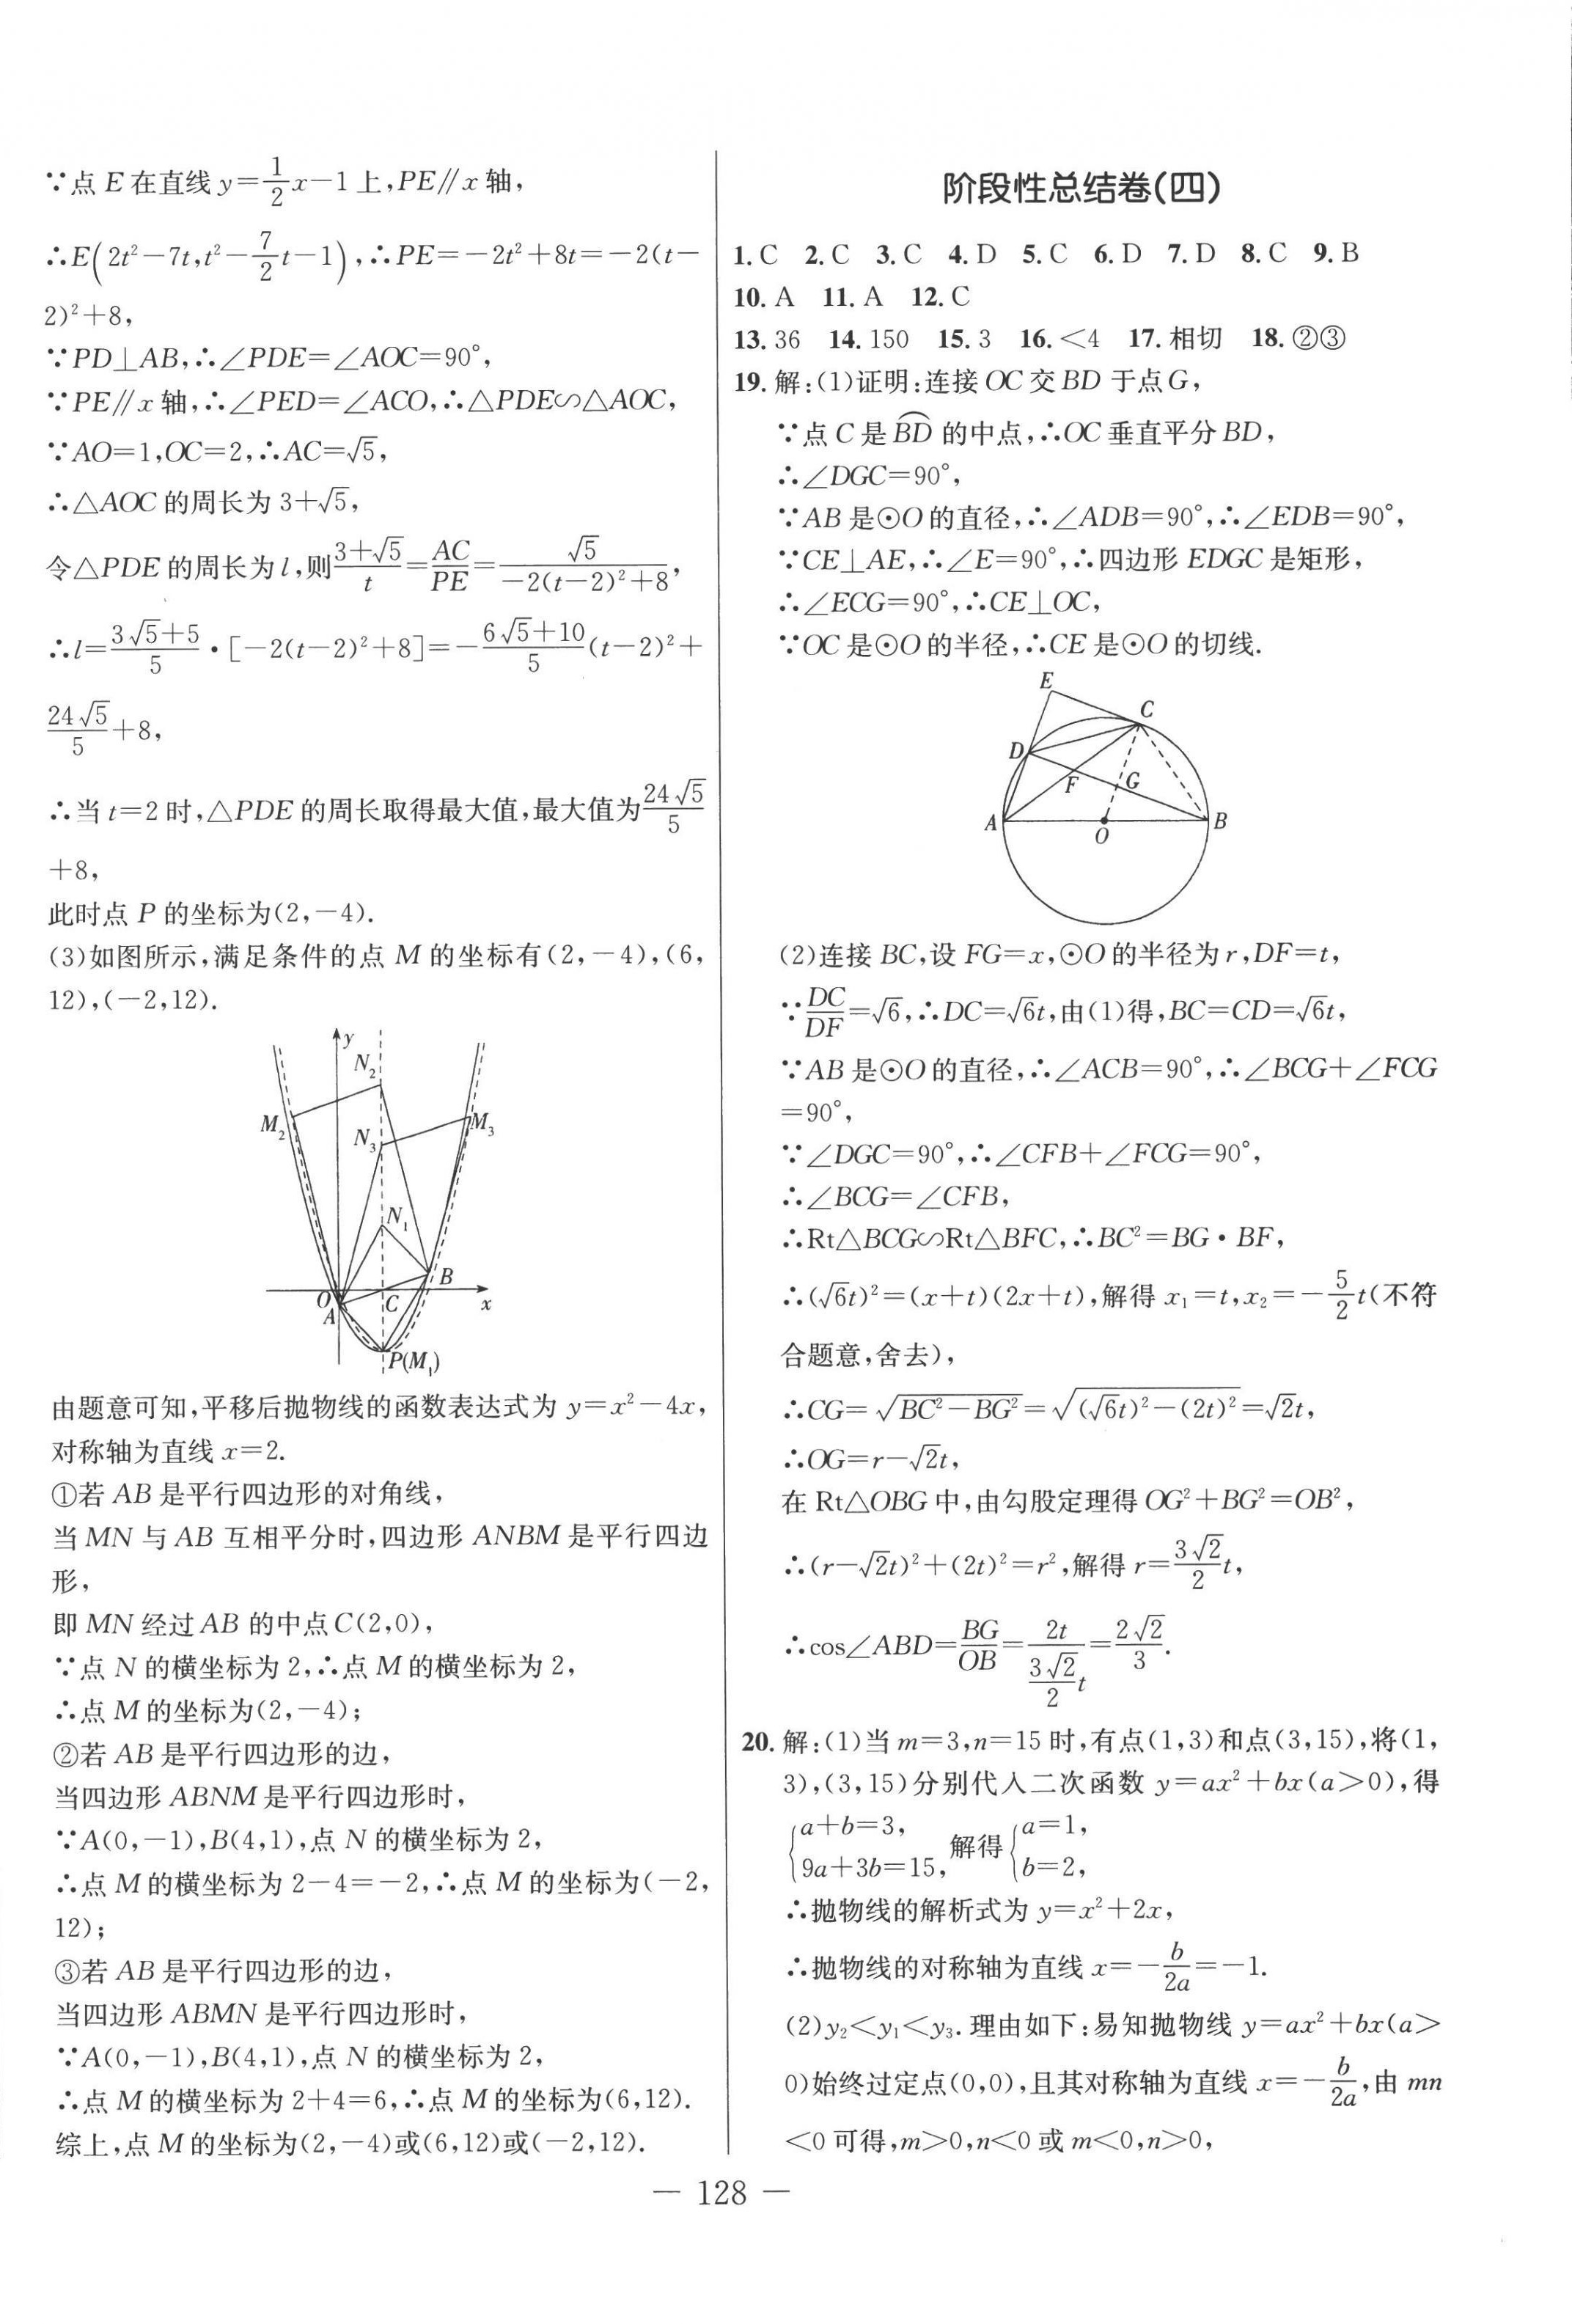 ∵点 E 在直线 y=\frac{1}{2}x-1 上,PE∥x 轴,
∴E(2t²-7t,t²-\frac{7}{2}t-1),∴PE=-2t²+8t=-2(t-
2)²+8,
∵PD⊥AB,∴∠PDE=∠AOC=90°,
∵PE∥x 轴,∴∠PED=∠ACO,∴△PDE∽△AOC,
∵AO=1,OC=2,∴AC=√5,
∴△AOC 的周长为 3+√5,
令△PDE 的周长为 l,则\frac{3+√5}{t}=\frac{AC}{PE}=\frac{√5}{-2(t-2)²+8},
∴l=\frac{3√5+5}{5}·[-2(t-2)²+8]=-\frac{6√5+10}{5}(t-2)²+
\frac{24√5}{5}+8,
∴当 t=2 时,△PDE 的周长取得最大值,最大值为\frac{24√5}{5}
+8,
此时点 P 的坐标为(2,-4).
(3)如图所示,满足条件的点 M 的坐标有(2,-4),(6,
12),(-2,12).
y
N₂
M₂
N₃
M₃
N₁
B
O
A
C
x
P(M₁)
由题意可知,平移后抛物线的函数表达式为 y=x²-4x,
对称轴为直线 x=2.
①若 AB 是平行四边形的对角线,
当 MN 与 AB 互相平分时,四边形 ANBM 是平行四边
形,
即 MN 经过 AB 的中点 C(2,0),
∵点 N 的横坐标为 2,∴点 M 的横坐标为 2,
∴点 M 的坐标为(2,-4);
②若 AB 是平行四边形的边,
当四边形 ABNM 是平行四边形时,
∵A(0,-1),B(4,1),点 N 的横坐标为 2,
∴点 M 的横坐标为 2-4=-2,∴点 M 的坐标为(-2,
12);
③若 AB 是平行四边形的边,
当四边形 ABMN 是平行四边形时,
∵A(0,-1),B(4,1),点 N 的横坐标为 2,
∴点 M 的横坐标为 2+4=6,∴点 M 的坐标为(6,12).
综上,点 M 的坐标为(2,-4)或(6,12)或(-2,12).
阶段性总结卷(四)
1. C 2. C 3. C 4. D 5. C 6. D 7. D 8. C 9. B
10. A 11. A 12. C
13. 36 14. 150 15. 3 16. <4 17. 相切 18. ②③
19. 解:(1)证明:连接 OC 交 BD 于点 G,
∵点 C 是\overset{\frown}{BD}的中点,∴OC 垂直平分 BD,
∴∠DGC=90°,
∵AB 是⊙O 的直径,∴∠ADB=90°,∴∠EDB=90°,
∵CE⊥AE,∴∠E=90°,∴四边形 EDGC 是矩形,
∴∠ECG=90°,∴CE⊥OC,
∵OC 是⊙O 的半径,∴CE 是⊙O 的切线.
E
C
D
F
G
A
O
B
(2)连接 BC,设 FG=x,⊙O 的半径为 r,DF=t,
∵\frac{DC}{DF}=√6,∴DC=√6t,由(1)得,BC=CD=√6t,
∵AB 是⊙O 的直径,∴∠ACB=90°,∴∠BCG+∠FCG
=90°,
∵∠DGC=90°,∴∠CFB+∠FCG=90°,
∴∠BCG=∠CFB,
∴Rt△BCG∽Rt△BFC,∴BC²=BG·BF,
∴(√6t)²=(x+t)(2x+t),解得 x₁=t,x₂=-\frac{5}{2}t(不符
合题意,舍去),
∴CG=\sqrt{BC²-BG²}=\sqrt{(√6t)²-(2t)²}=√2t,
∴OG=r-√2t,
在 Rt△OBG 中,由勾股定理得 OG²+BG²=OB²,
∴(r-√2t)²+(2t)²=r²,解得 r=\frac{3√2}{2}t,
∴cos∠ABD=\frac{BG}{OB}=\frac{2t}{\frac{3√2}{2}t}=\frac{2√2}{3}.
20. 解:(1)当 m=3,n=15 时,有点(1,3)和点(3,15),将(1,
3),(3,15)分别代入二次函数 y=ax²+bx(a>0),得
{a+b=3, 9a+3b=15, 解得 {a=1, b=2,
∴抛物线的解析式为 y=x²+2x,
∴抛物线的对称轴为直线 x=-\frac{b}{2a}=-1.
(2)y₂<y₁<y₃. 理由如下:易知抛物线 y=ax²+bx(a>
0)始终过定点(0,0),且其对称轴为直线 x=-\frac{b}{2a},由 mn
<0 可得,m>0,n<0 或 m<0,n>0,
— 128 —